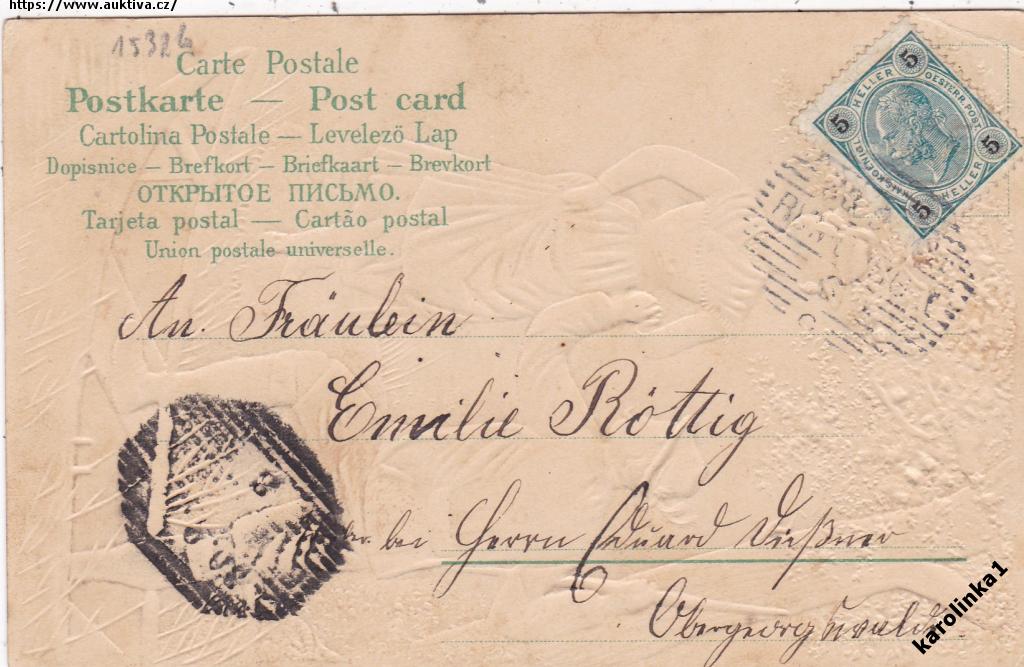 https://www.auktiva.cz/
1532b
Carte Postale
Postkarte — Post card
Cartolina Postale — Levelező Lap
Dopisnice — Brefkort — Briefkaart — Brevkort
ОТКРЫТОЕ ПИСЬМО.
Tarjeta postal — Cartão postal
Union postale universelle.
5 HELLER 5 OESTERR. POST. 5 HELLER 5
An. Fräulein
Emilie Röttig
bei Herrn Eduard Dießner
Obergeorgswalde
karolinka1